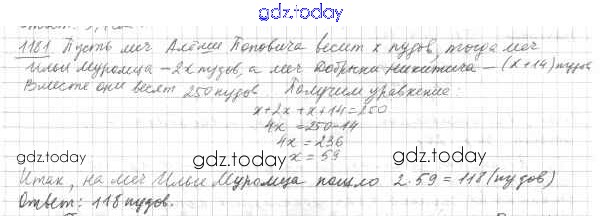 gdz.today
1161 Пусть меч Алёши Поповича весит x пудов, тогда меч
Ильи Муромца – 2x пудов, а меч Добрыни Никитича – (x+14) пудов
Вместе они весят 250 пудов. Получим уравнение:
x+2x+x+14=250
4x = 250-14
4x = 236
x = 59
gdz.today
gdz.today
gdz.today
Итак, на меч Ильи Муромца пошло 2·59=118 (пудов)
Ответ: 118 пудов.
gdz.today
gdz.today